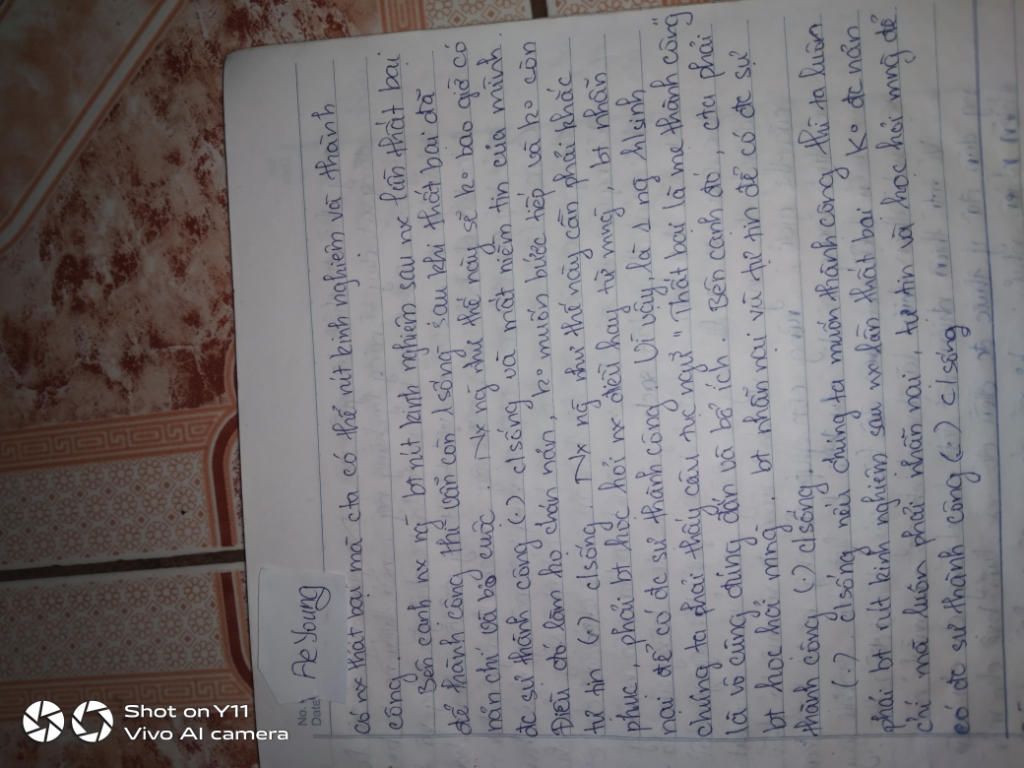 No.
Date
Ae Young
có nx thất bại mà cta có thể rút kinh nghiệm và thành
công.
Bên cạnh nx ng bt rút kinh nghiệm sau nx lần thất bại
để thành công thì vẫn còn sống sau khi thất bại đã
nản chí và bỏ cuộc. Nx ng như thế này sẽ ko bao giờ có
đc sự thành công (.) c/sống và mất niềm tin của mình.
Điều đó làm họ chán nản, ko muốn bước tiếp và ko còn
tự tin (.) c/sống. Nx ng như thế này cần phải khắc
phục, phải bt học hỏi nx điều hay từ mng, bt nhẫn
nại để có đc sự thành công. Vì vậy, là 1 ng h/sinh
chúng ta phải thấy câu tục ngữ "Thất bại là mẹ thành công"
là vô cùng đúng đắn và bổ ích. Bên cạnh đó, cta phải
bt học hỏi mng, bt nhẫn nại và tự tin để có đc sự
thành công (.) c/sống.
(.) c/sống nếu chúng ta muốn thành công thì ta luôn
phải bt rút kinh nghiệm sau nx lần thất bại. Ko đc nản
chí mà luôn phải nhẫn nại, tự tin và học hỏi mng để
có đc sự thành công (.) c/sống
Shot on Y11
Vivo AI camera